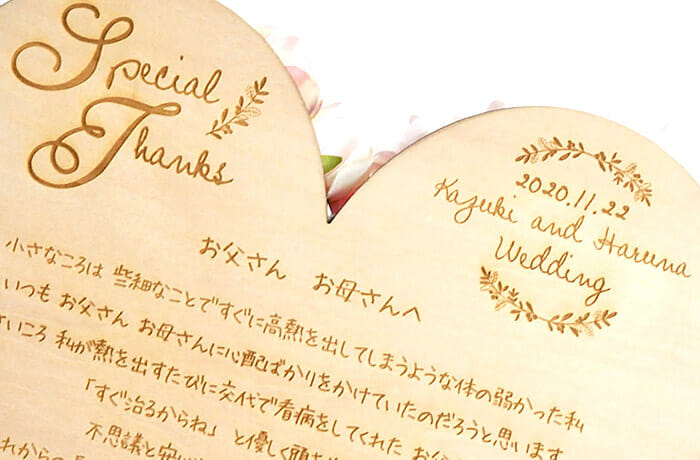 Special
Thanks
2020.11.22
Kazuki and Haruna
Wedding
お父さん お母さんへ
小さなころは 些細なことですぐに高熱を出してしまうような体の弱かった私
いつも お父さん お母さんに心配ばかりをかけていたのだろうと思います
さいころ 私が熱を出すたびに交代で看病をしてくれた お父
「すぐ治るからね」 と優しく頭を
不思議と安
れからの